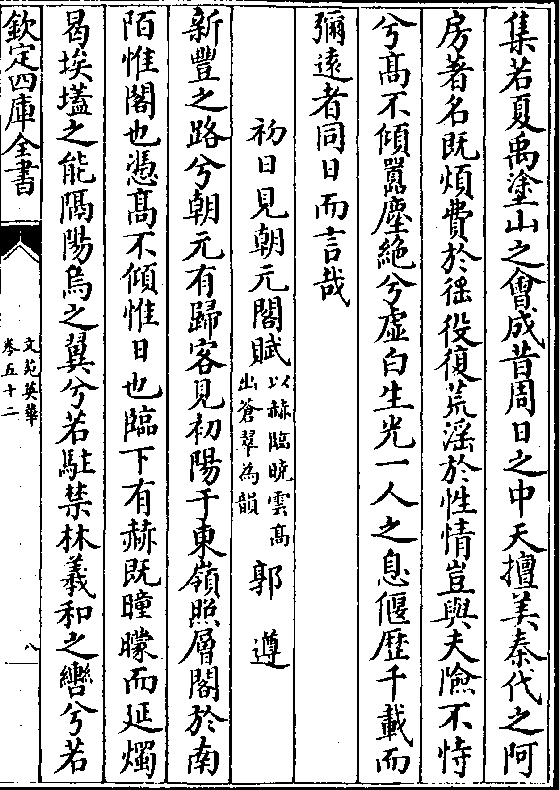 集若夏禹塗山之會成昔周日之中天擅美秦代之阿
房著名既煩費於徭役復荒滛於性情豈與夫險不恃
兮髙不傾囂塵絶兮虚白生光一人之息偃歴千載而
彌逺者同日而言哉
初日見朝元閣賦以赫臨曉雲髙出蒼翠為韻 郭遵
新豐之路兮朝元有歸客見初陽于東嶺照層閣於南
陌惟閣也憑髙不傾惟日也臨下有赫既曈曚而延燭
曷埃壒之能隅陽烏之翼兮若駐禁林羲和之轡兮若
欽定四庫全書
文苑英華
卷五十二
八